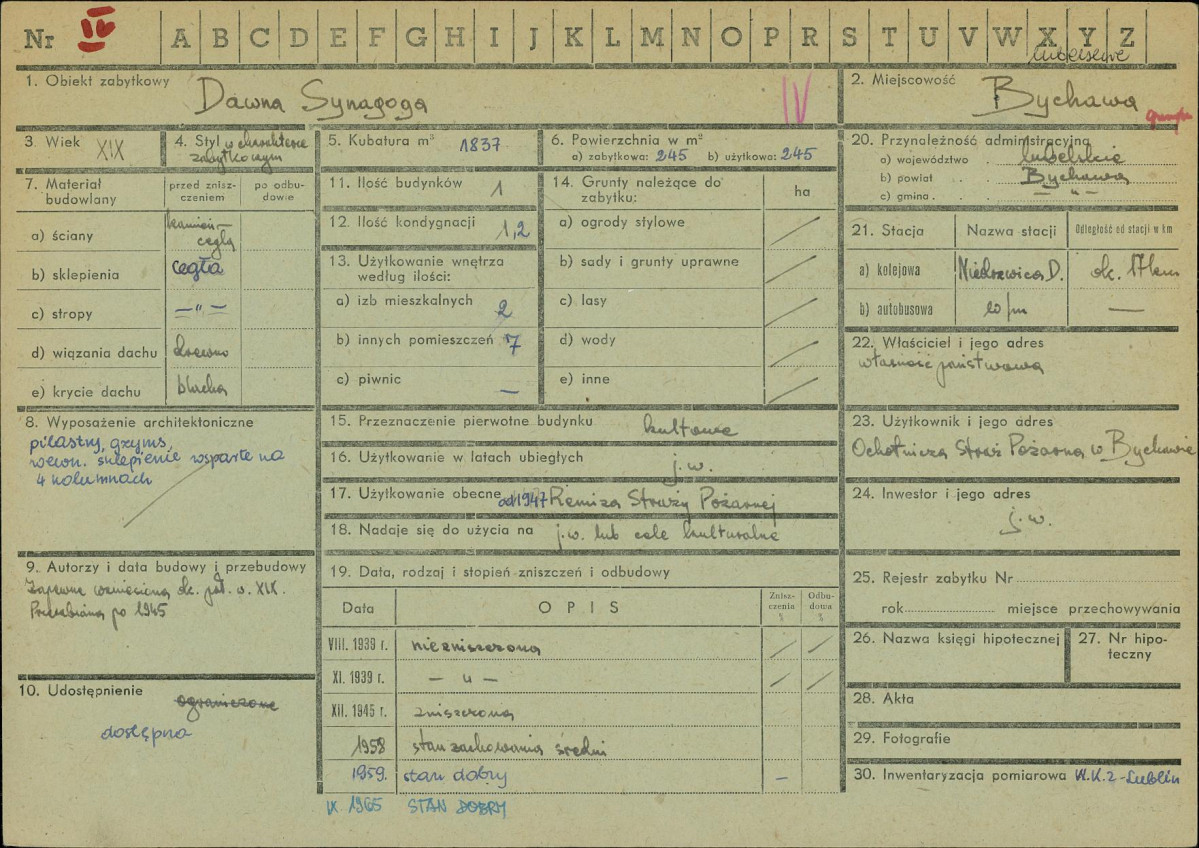 Nr IV A B C D E F G H I J K L M N O P R S T U V W X Y Z
lubelskie
1. Obiekt zabytkowy
Dawna Synagoga
IV
2. Miejscowość
Bychawa
3. Wiek XIX
4. Styl o charakterze
zabytkowym
5. Kubatura m³ 1837
6. Powierzchnia w m²
a) zabytkowa: 245 b) użytkowa: 245
7. Materiał budowlany
przed znisz-
czeniem
po odbu-
dowie
a) ściany kamień-
cegła
b) sklepienia cegła
c) stropy —"—
d) wiązania dachu drewno
e) krycie dachu blacha
8. Wyposażenie architektoniczne
pilastry, gzyms,
wewn. sklepienie wsparte na
4 kolumnach
9. Autorzy i data budowy i przebudowy
Zapewne wzniesiona ok. poł. w. XIX.
Przerabiana po 1945
10. Udostępnienie
ograniczone
dostępna
11. Ilość budynków 1
12. Ilość kondygnacji 1,2
13. Użytkowanie wnętrza
według ilości:
a) izb mieszkalnych 2
b) innych pomieszczeń 7
c) piwnic —
14. Grunty należące do
zabytku:
ha
a) ogrody stylowe
b) sady i grunty uprawne
c) lasy
d) wody
e) inne
15. Przeznaczenie pierwotne budynku kultowe
16. Użytkowanie w latach ubiegłych j.w.
17. Użytkowanie obecne od 1947 Remiza Straży Pożarnej
18. Nadaje się do użycia na j.w. lub cele kulturalne
19. Data, rodzaj i stopień zniszczeń i odbudowy
Data
OPIS
Znisz-
czenia
%
Odbu-
dowa
%
VIII. 1939 r. niezniszczona
XI. 1939 r. — " —
XII. 1945 r. zniszczona
1958 stan zachowania średni
1959. stan dobry —
IX. 1965 STAN DOBRY
20. Przynależność administracyjna
a) województwo . lubelskie
b) powiat . . Bychawa
c) gmina . . . — " —
21. Stacja
Nazwa stacji
Odległość od stacji w km
a) kolejowa Niedrzwica D. ok. 17 km
b) autobusowa —
22. Właściciel i jego adres
własność państwowa
23. Użytkownik i jego adres
Ochotnicza Straż Pożarna w Bychawie
24. Inwestor i jego adres
j.w.
25. Rejestr zabytku Nr
rok miejsce przechowywania
26. Nazwa księgi hipotecznej
27. Nr hipo-
teczny
28. Akta
29. Fotografie
30. Inwentaryzacja pomiarowa W.K.Z-Lublin